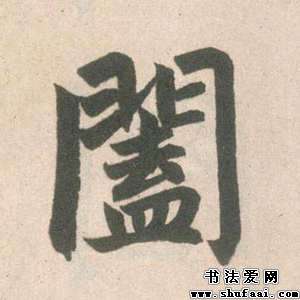 闔
书法爱网
www.shufaai.com